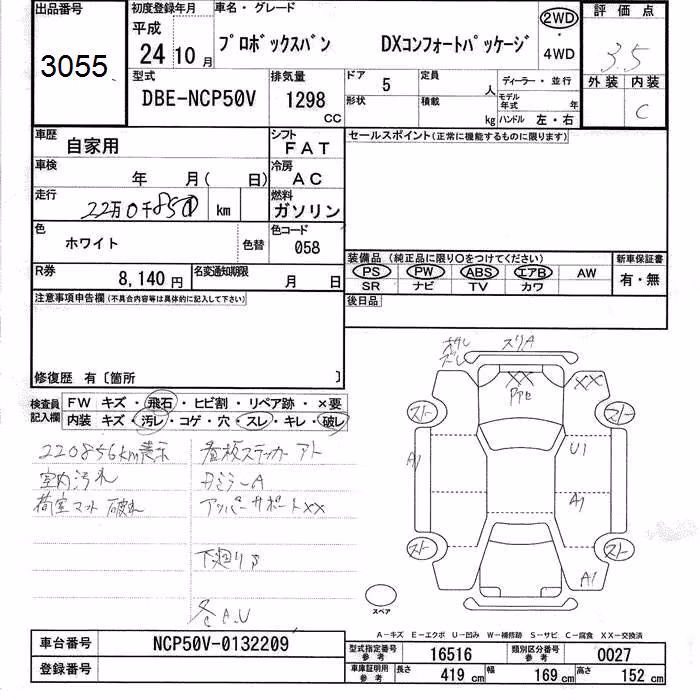 出品番号
3055
初度登録年月
平成
24年10月
車名・グレード
プロボックスバン DXコンフォートパッケージ
2WD
・
4WD
評価点
3.5
外装 内装
C
型式
DBE-NCP50V
排気量
1298
CC
ドア
5
形状
定員
人
積載
kg
ディーラー・並行
モデル年式 年
ハンドル 左・右
車歴
自家用
シフト
FAT
車検
年 月( 日)
冷房
AC
走行
km
燃料
ガソリン
色
ホワイト
色替
色コード
058
R券
8,140 円
名変通知期限
月 日
セールスポイント(正常に機能するものに限ります)
装備品(純正品に限り〇をつけてください)
PS PW ABS エアB AW
SR ナビ TV カワ
新車保証書
有・無
後日品
注意事項申告欄(不具合内容等は具体的に記入して下さい)
修復歴 有〔箇所 〕
検査員
記入欄
FW キズ・飛石・ヒビ割・リペア跡・×要
内装 キズ・汚レ・コゲ・穴・スレ・キレ・破レ
220856km表示
室内汚れ
荷室マット破れ
看板ステッカーアト
Rミラー A
アッパーサポートXX
下廻りP
各CA.U
スリA
XX
XX
スト
スト
A1
U1
A1
スト
スト
A1
スペア
A-キズ E-エクボ U-凹み W-補修跡 S-サビ C-腐食 XX-交換済
車台番号
NCP50V-0132209
登録番号
型式指定番号
参考
16516
類別区分番号
参考
0027
車庫証明用
参考
長さ 419 cm
幅 169 cm
高さ 152 cm